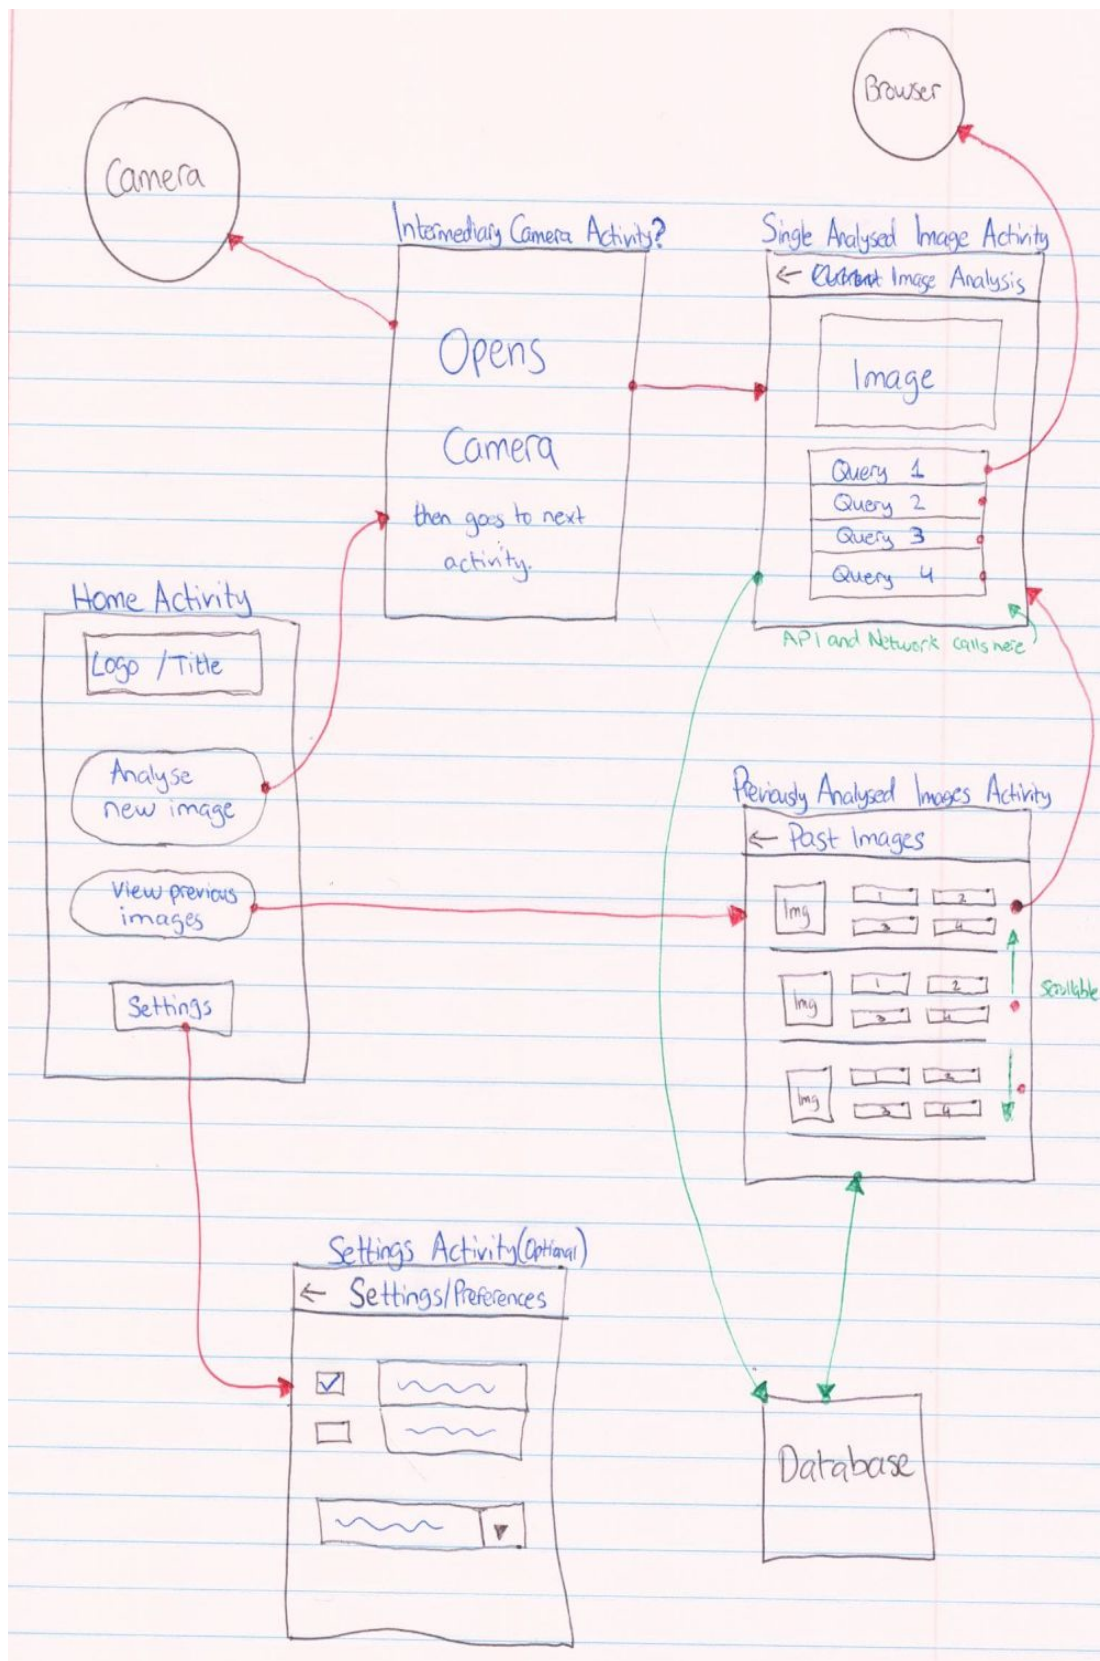 Browser
Camera
Intermediary Camera Activity?
Opens
Camera
then goes to next
activity.
Single Analysed Image Activity
← Image Analysis
Image
Query 1
Query 2
Query 3
Query 4
API and Network calls here
Home Activity
Logo / Title
Analyse
new image
View previous
images
Settings
Previously Analysed Images Activity
← Past Images
Img
1 2
3 4
Img
1 2
3 4
Img
1 2
3 4
Scrollable
Settings Activity (Optional)
← Settings/Preferences
Database